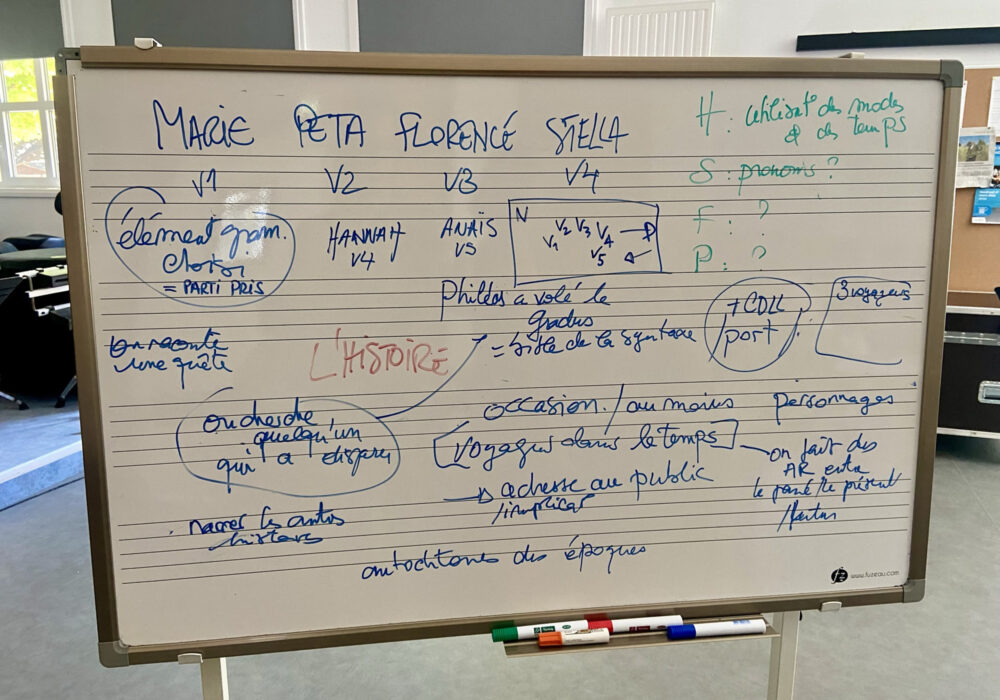 MARIE PETA FLORENCE STELLA
V1 V2 V3 V4
H : utilisat° des modes
& des temps
S : pronoms ?
F : ?
P : ?
élément gram.
choisi
= PARTI PRIS
HANNAH
V4
ANAÏS
V5
N
V1 V2 V3 V4
V5
Philéas a volé le
gradus
= bible de la syntaxe
+ COLL
port
3 voyageurs
on raconte
une quête
L'HISTOIRE
on cherche
quelqu'un
qui a disparu
occasion / au moins personnages
voyages dans le temps
on fait des
AR entre
le passé/le présent
/futur
adresse au public
. narrer les autres
histoires
autochtones des époques
www.fuzeau.com